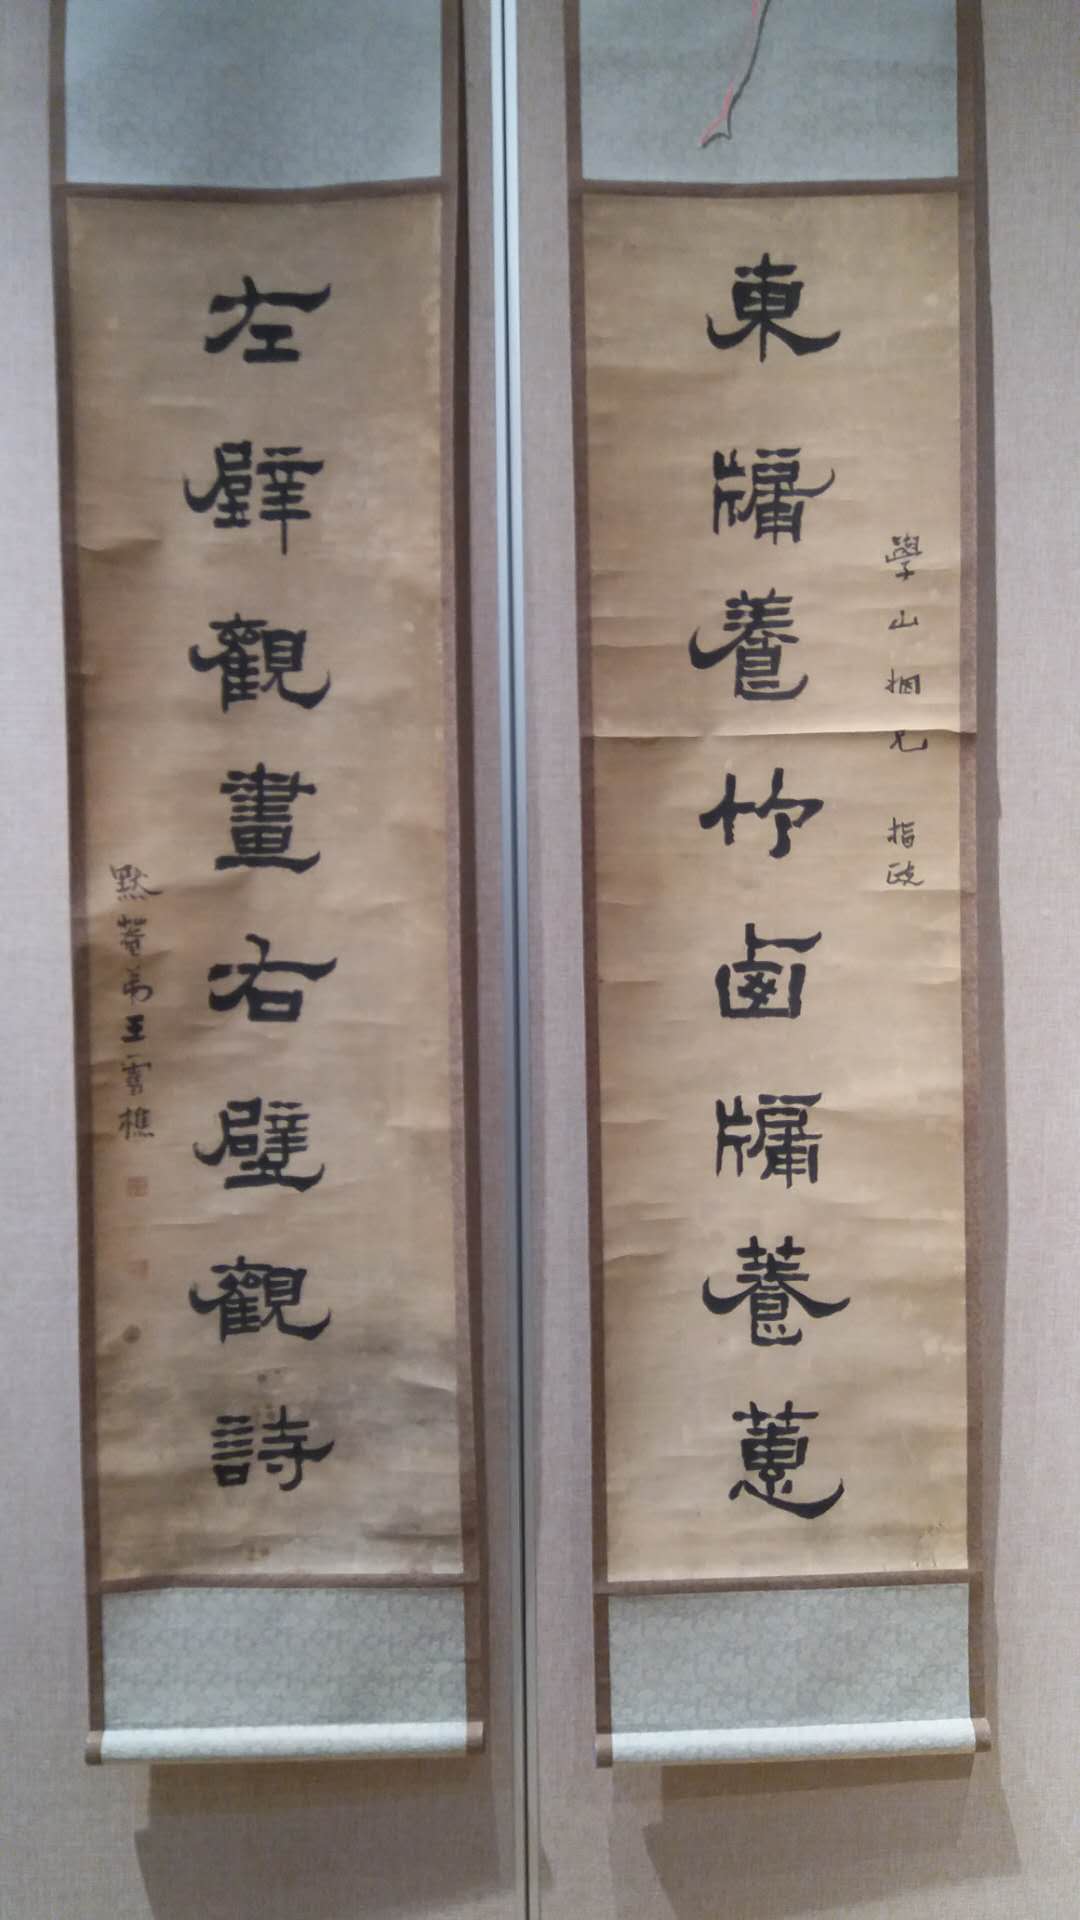 學山姻兄 指政
東牖養竹卤牖養蕙
左壁觀畫右壁觀詩
默菴弟王雲樵